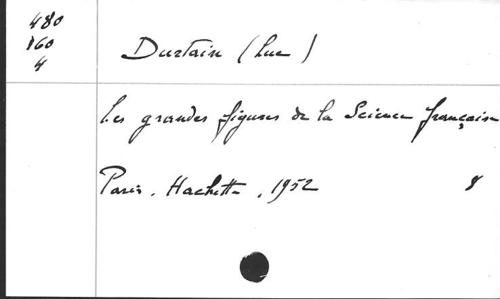 480
160
4
Durtain (Luc)
Les grandes figures de la Science française
Paris. Hachette, 1952 8